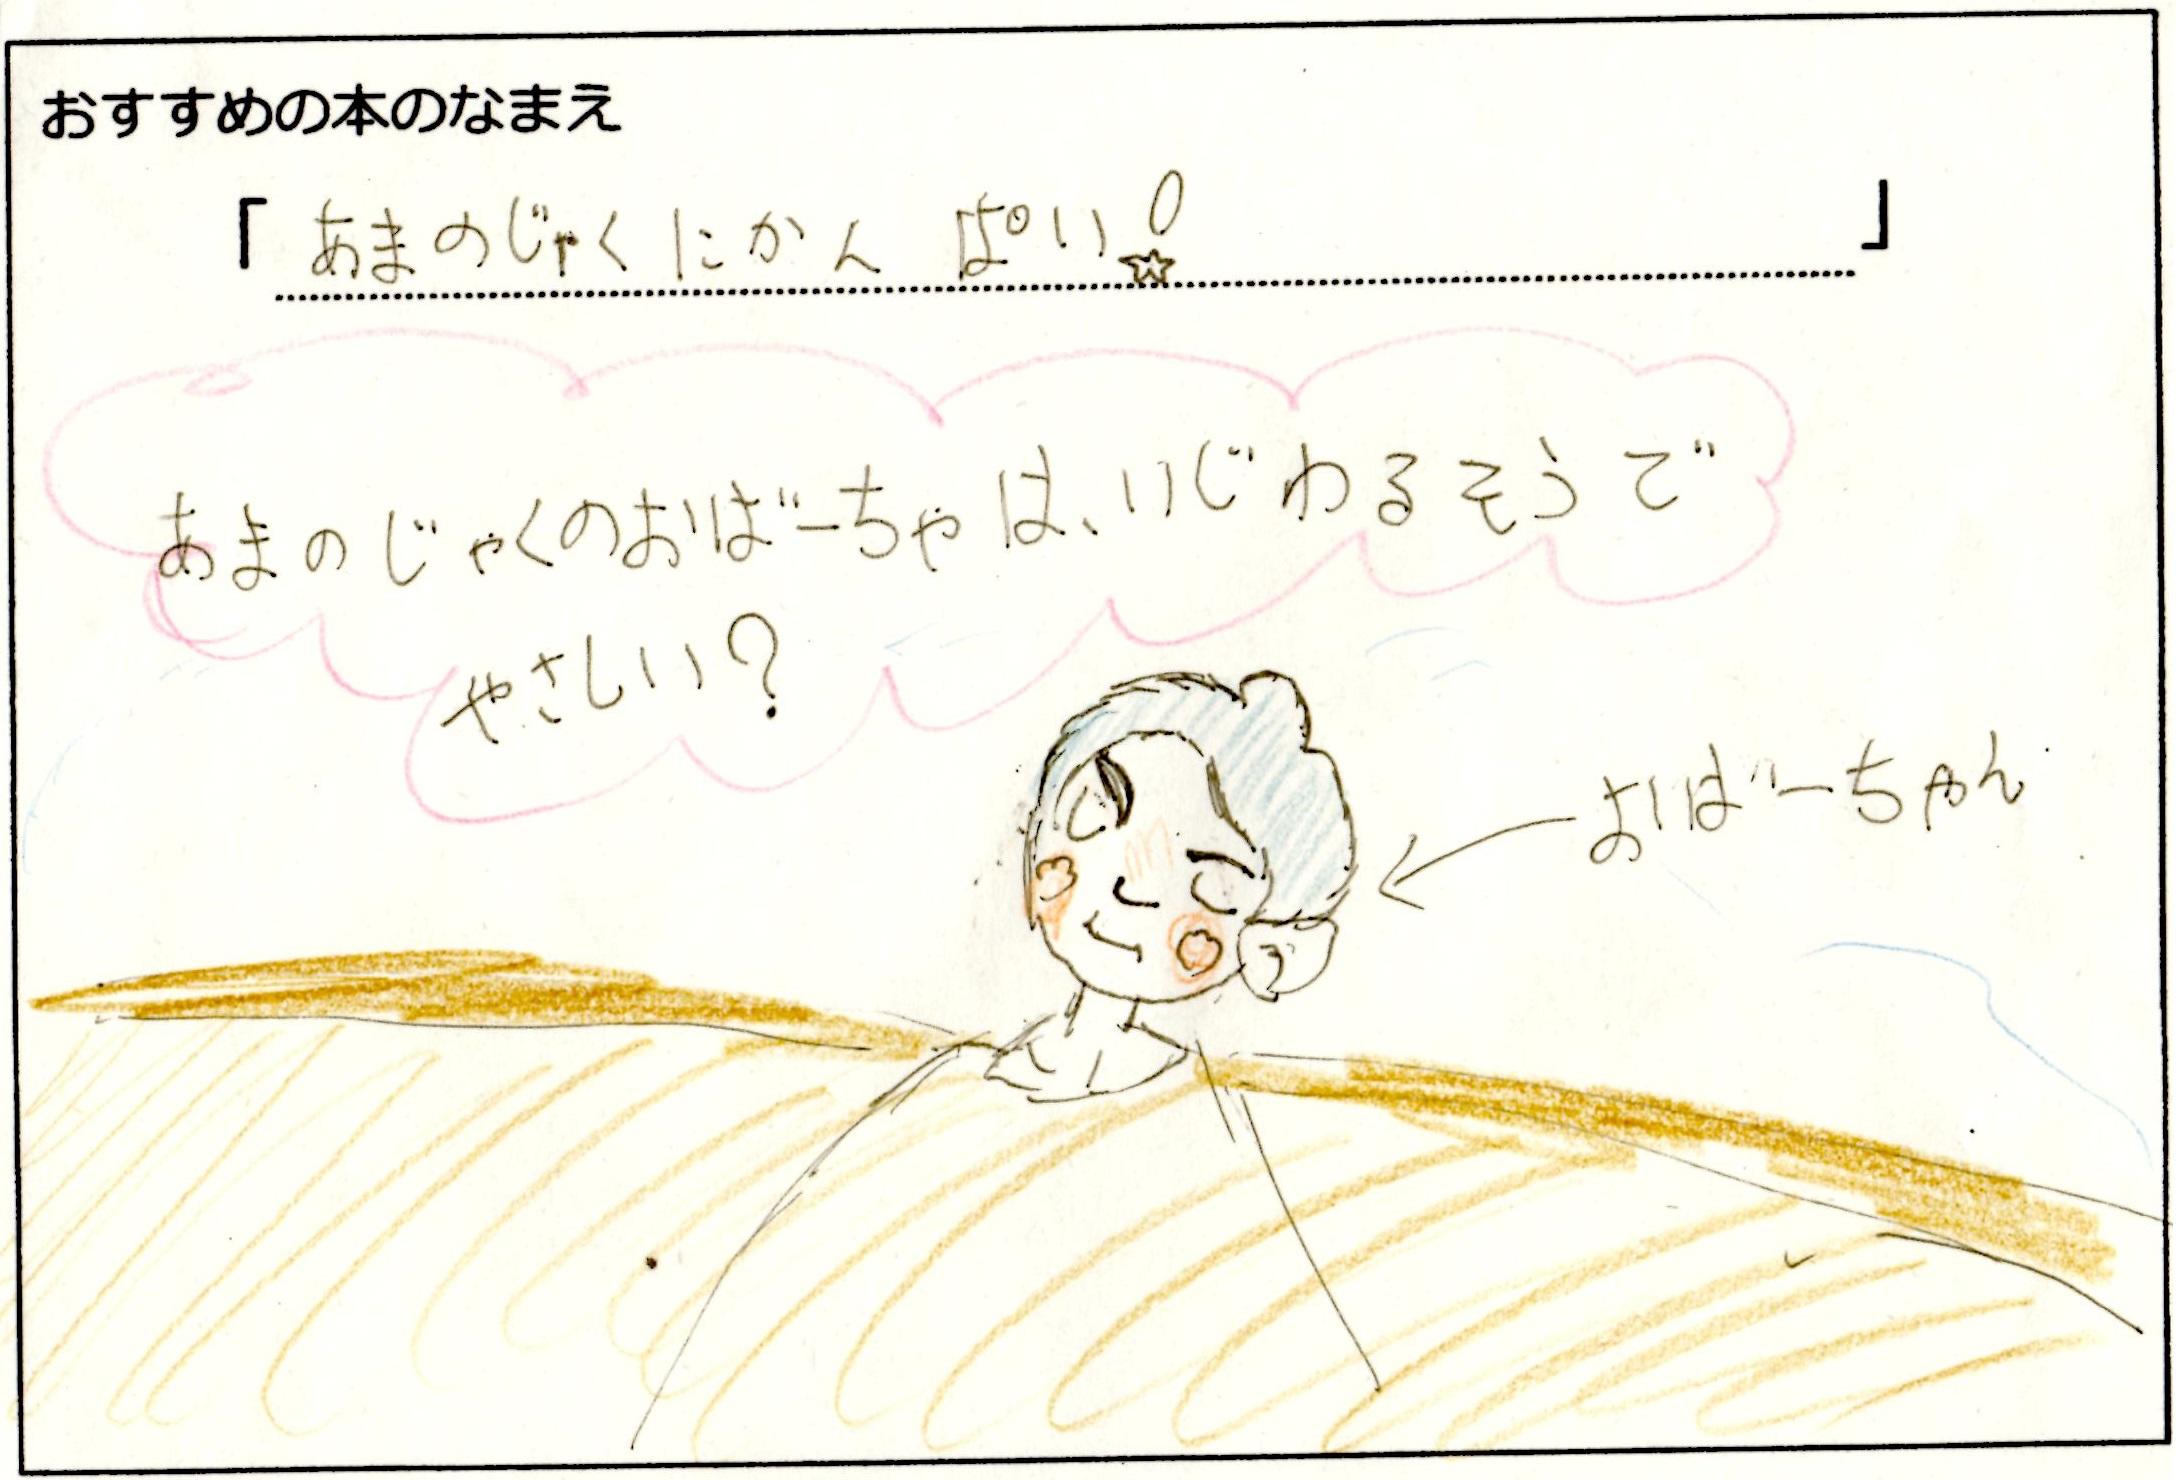 おすすめの本のなまえ
「あまのじゃくにかんぱい!」
あまのじゃくのおばーちゃは、いじわるそうで
やさしい?
おばーちゃん